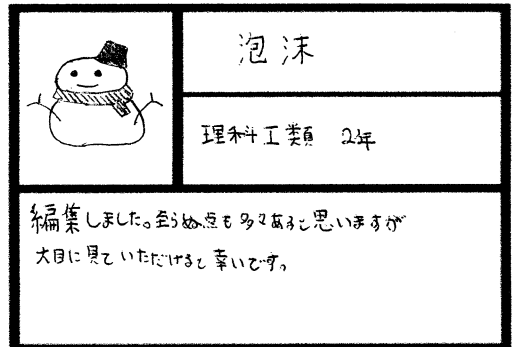 泡沫
理科工類 2年
編集しました。至らぬ点も多々あると思いますが
大目に見ていただけると幸いです。